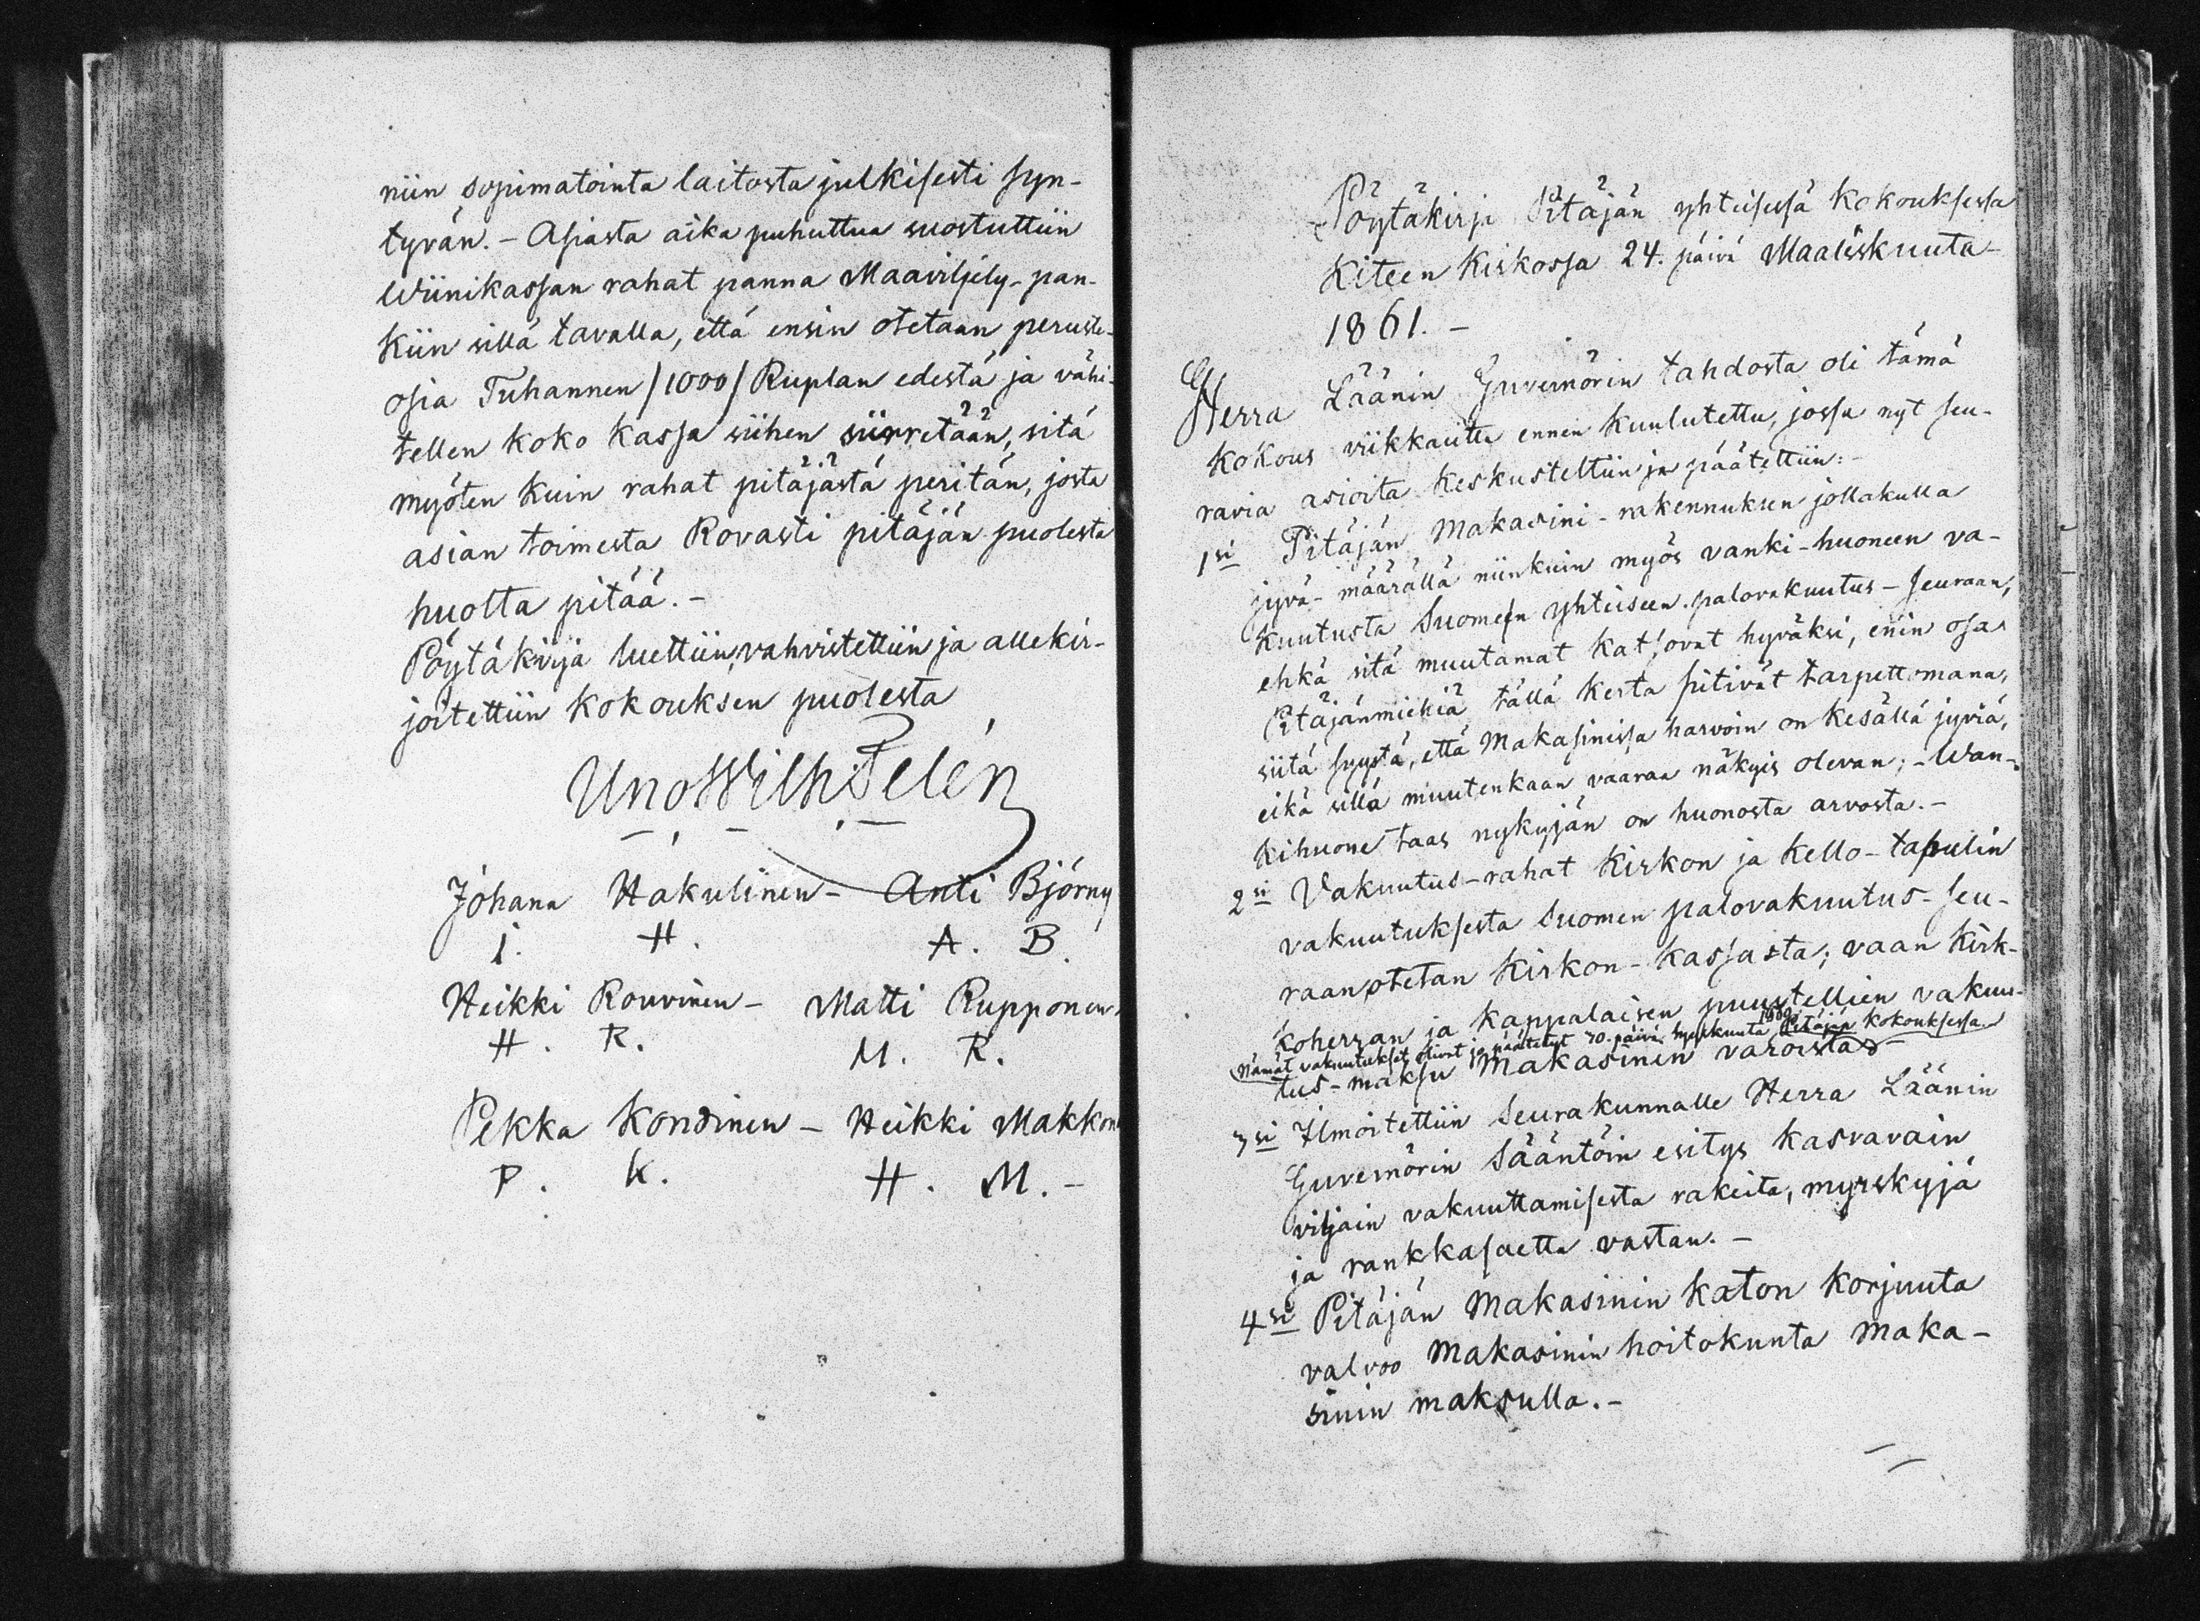 niin sopimatointa laitosta julkisesti syn-
tyvän. - Asiasta aika puhuttua suostuttiin
Wiinikassan rahat panna Maaviljely-pan-
kiin sillä tavalla, että ensin otetaan peruste-
osia Tuhannen /1000/ Ruplan edestä ja vähi-
tellen koko kassa siihen siirretään, sitä
myöten kuin rahat pitäjästä peritän, josta
asian toimesta Rovasti pitäjän puolesta
huolta pitää. -
Pöytäkirja luettiin, vahvistettiin ja allekir-
joitettiin kokouksen puolesta
Uno Wilh: Telén
Johana Hakulinen - Anti Björny
J. H. A. B.
Heikki Rouvinen - Matti Rupponen
H. R. M. R.
Pekka Kondinen - Heikki Makkon
P. K. H. M. -
Pöytäkirja Pitäjän yhteisessä kokouksessa
Kiteen Kirkossa 24. päivä Maaliskuuta
1861. -
Herra Läänin Guvernörin tahdosta oli tämä
kokous viikkautta ennen kuulutettu, jossa nyt seu-
ravia asioita keskusteltiin ja päätettiin: -
1si Pitäjän Makasini-rakennuksen jollakulla
jyvä-määrällä niinkuin myös vanki-huoneen va-
kuutusta Suomen yhteiseen palovakuutus-seuraan,
ehkä sitä muutamat katsovat hyväksi, enin osa
Pitäjänmiehiä tällä kerta pitivät tarpettomana,
siitä syystä, että Makasinissa harvoin on kesällä jyviä,
eikä sillä muutenkaan vaaraa näkyis olevan; - Wan-
kihuone taas nykyjän on huonosta arvosta. -
2si Vakuutus-rahat Kirkon ja Kello-tapulin
vakuutuksesta Suomen palovakuutus-seu-
raan otetan Kirkon-kassasta; vaan Kirk-
koherran ja kappalaisen puustellien vakuu-
(Nämät vakuutukset olivat jo päätetyt 30. päivä Syyskuuta 1860 Pitäjän kokouksessa.)
tus-maksu Makasinin varoista
3si Ilmoitettiin Seurakunnalle Herra Läänin
Guvernörin Sääntöin esitys kasvavain
viljain vakuuttamisesta rakeita, myrskyjä
ja rankkasaetta vastan. -
4si Pitäjän Makasinin katon korjuuta
valvoo Makasinin hoitokunta Maka-
sinin maksulla. -